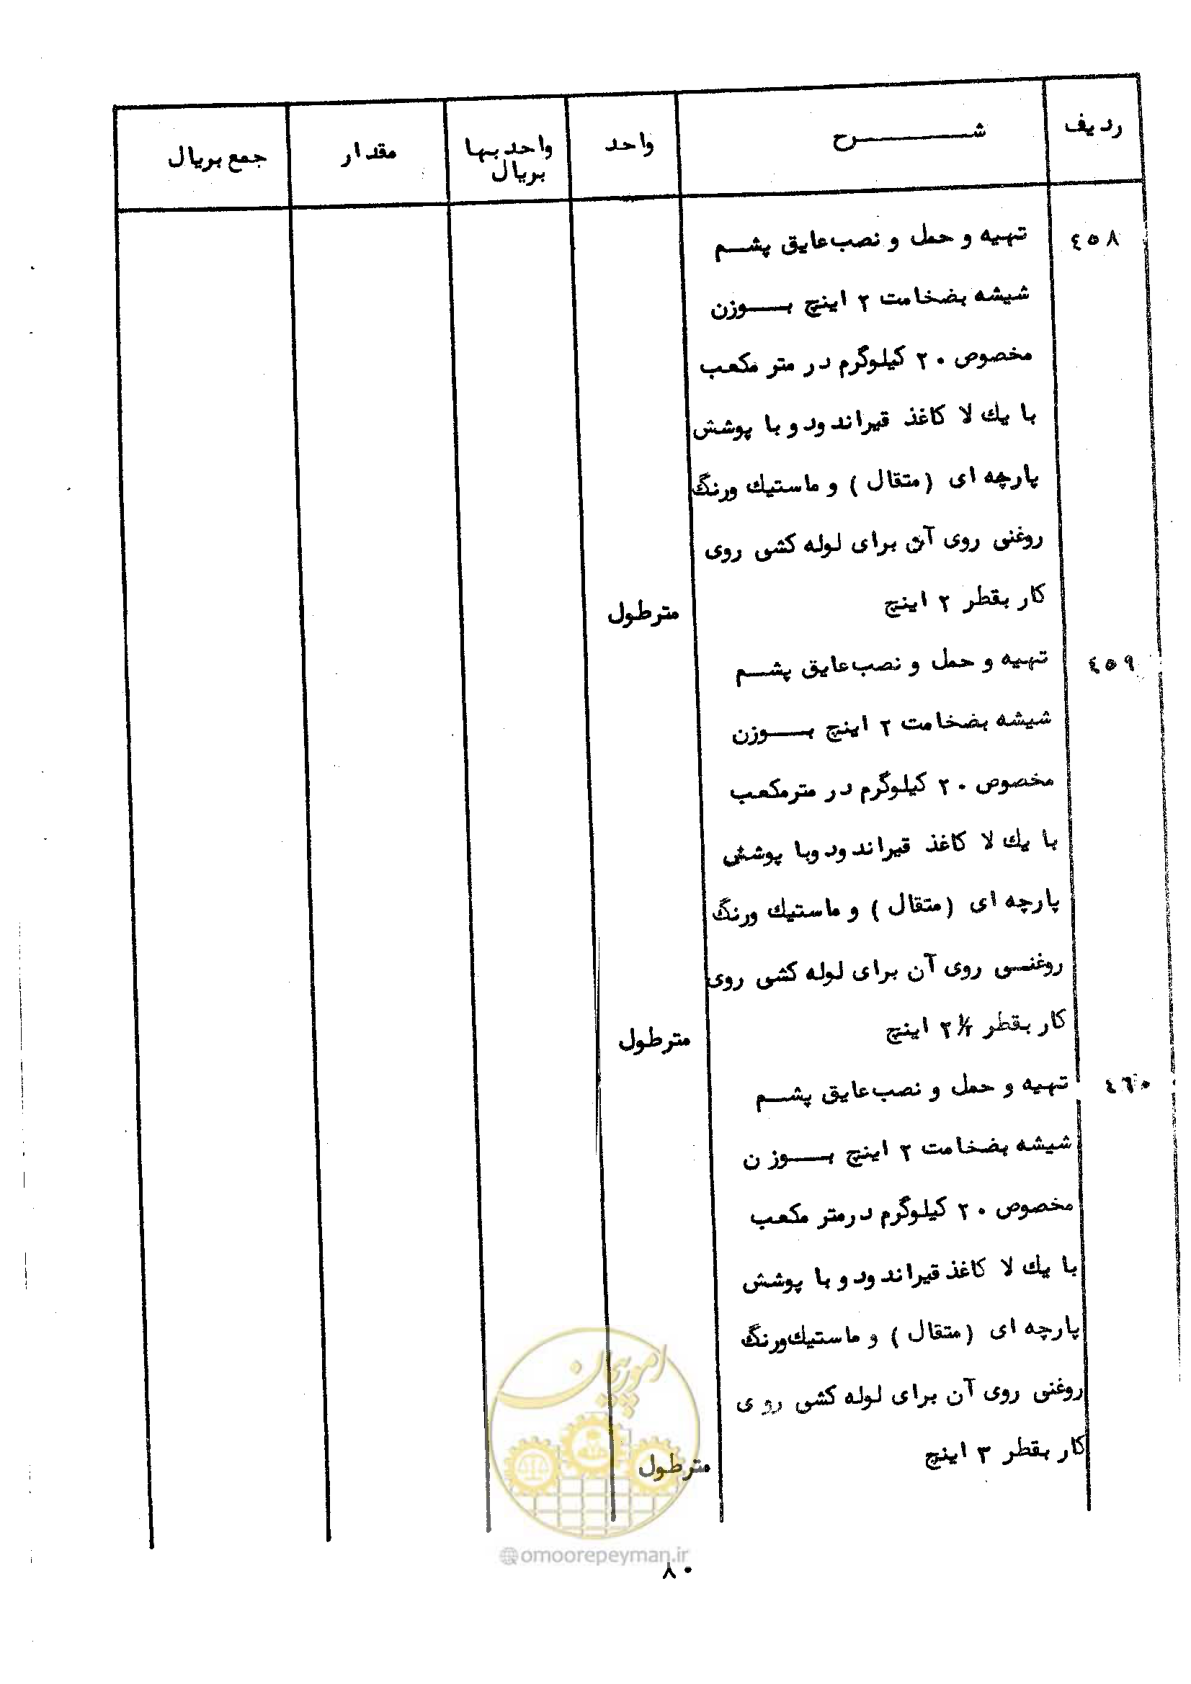 ردیف شرح واحد واحد بها بریال مقدار جمع بریال
٤٥٨ تهیه و حمل و نصب عایق پشم
شیشه بضخامت ٢ اینچ بوزن
مخصوص ٢٠ کیلوگرم در متر مکعب
با یك لا کاغذ قیراندود و با پوشش
پارچه ای (متقال) و ماستیك ورنگ
روغنی روی آن برای لوله کشی روی
کار بقطر ٢ اینچ مترطول
٤٥٩ تهیه و حمل و نصب عایق پشم
شیشه بضخامت ٢ اینچ بوزن
مخصوص ٢٠ کیلوگرم در مترمکعب
با یك لا کاغذ قیراندود وبا پوشش
پارچه ای (متقال) و ماستیك ورنگ
روغنی روی آن برای لوله کشی روی
کار بقطر ٢ ١/٢ اینچ مترطول
٤٦٠ تهیه و حمل و نصب عایق پشم
شیشه بضخامت ٢ اینچ بوزن
مخصوص ٢٠ کیلوگرم درمتر مکعب
با یك لا کاغذ قیراندود و با پوشش
پارچه ای (متقال) و ماستیك ورنگ
روغنی روی آن برای لوله کشی روی
کار بقطر ٣ اینچ مترطول
امور پیمان
@omoorepeyman.ir
٨٠